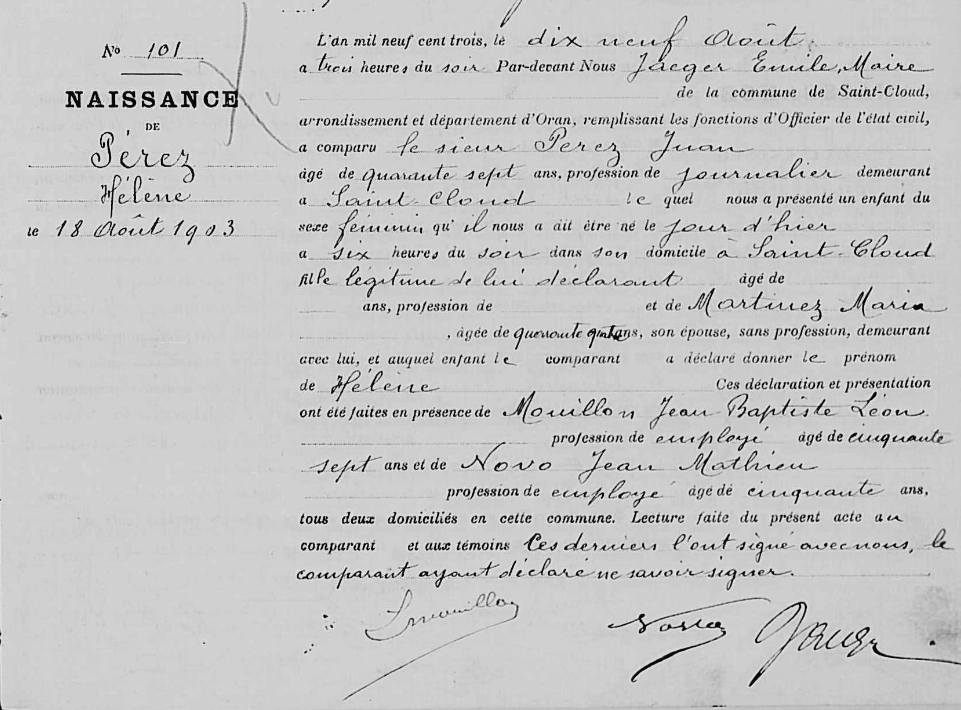 No 101
NAISSANCE
DE
Pérez
Hélène
le 18 Août 1903
L'an mil neuf cent trois, le dix neuf Août
a trois heures du soir Par-devant Nous Jaeger Emile, Maire
de la commune de Saint-Cloud,
arrondissement et département d'Oran, remplissant les fonctions d'Officier de l'état civil,
a comparu le sieur Pérez Juan
âgé de quarante sept ans, profession de journalier demeurant
a Saint-Cloud le quel nous a présenté un enfant du
sexe féminin qu'il nous a dit être né le jour d'hier
a six heures du soir dans son domicile à Saint-Cloud
fille légitime de lui déclarant âgé de
ans, profession de et de Martinez Maria
, âgée de quarante ans, son épouse, sans profession, demeurant
avec lui, et auquel enfant le comparant a déclaré donner le prénom
de Hélène Ces déclaration et présentation
ont été faites en présence de Mouillon Jean Baptiste Léon
profession de employé âgé de cinquante
sept ans et de Novo Jean Mathieu
profession de employé âgé de cinquante ans,
tous deux domiciliés en cette commune. Lecture faite du présent acte au
comparant et aux témoins Ces derniers l'ont signé avec nous, le
comparant ayant déclaré ne savoir signer.